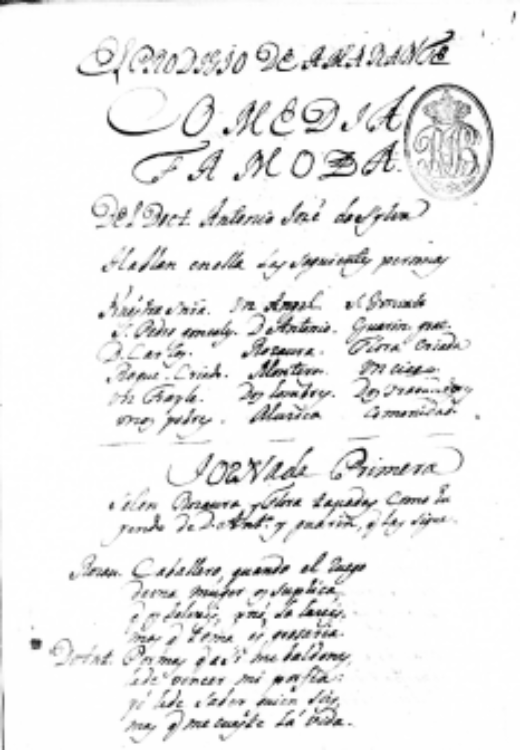 El PRODIGIO DE AMARANTE
COMEDIA
FAMOSA.
Del Doct. Antonio José de Sylva
Hablan en ella las siguientes personas
Nuestra Snra. Un Angel. S. Gonzalo
S. Pedro D. Antonio. Guarin, grac.
D. Carlos. Rozaura. Flora Criada
Roque. Criado. Montero. Un ciego
Un Frayle. Dos hombres. Dos
unos pobres. Musica Comunidad.
JORNada Primera
Salen Rozaura y Flora tapadas como hu
yendo de D. Ant.º y guarin, q las sigue.
Rozau. Caballero, quando el ruego
de una muger os suplica
q os bolvais,
mas q tema es groseria
D. Ant. Por mas q asi me baldones,
ha de vencer mi porfia:
yo he de saber quien sois
mas q me cueste la vida.